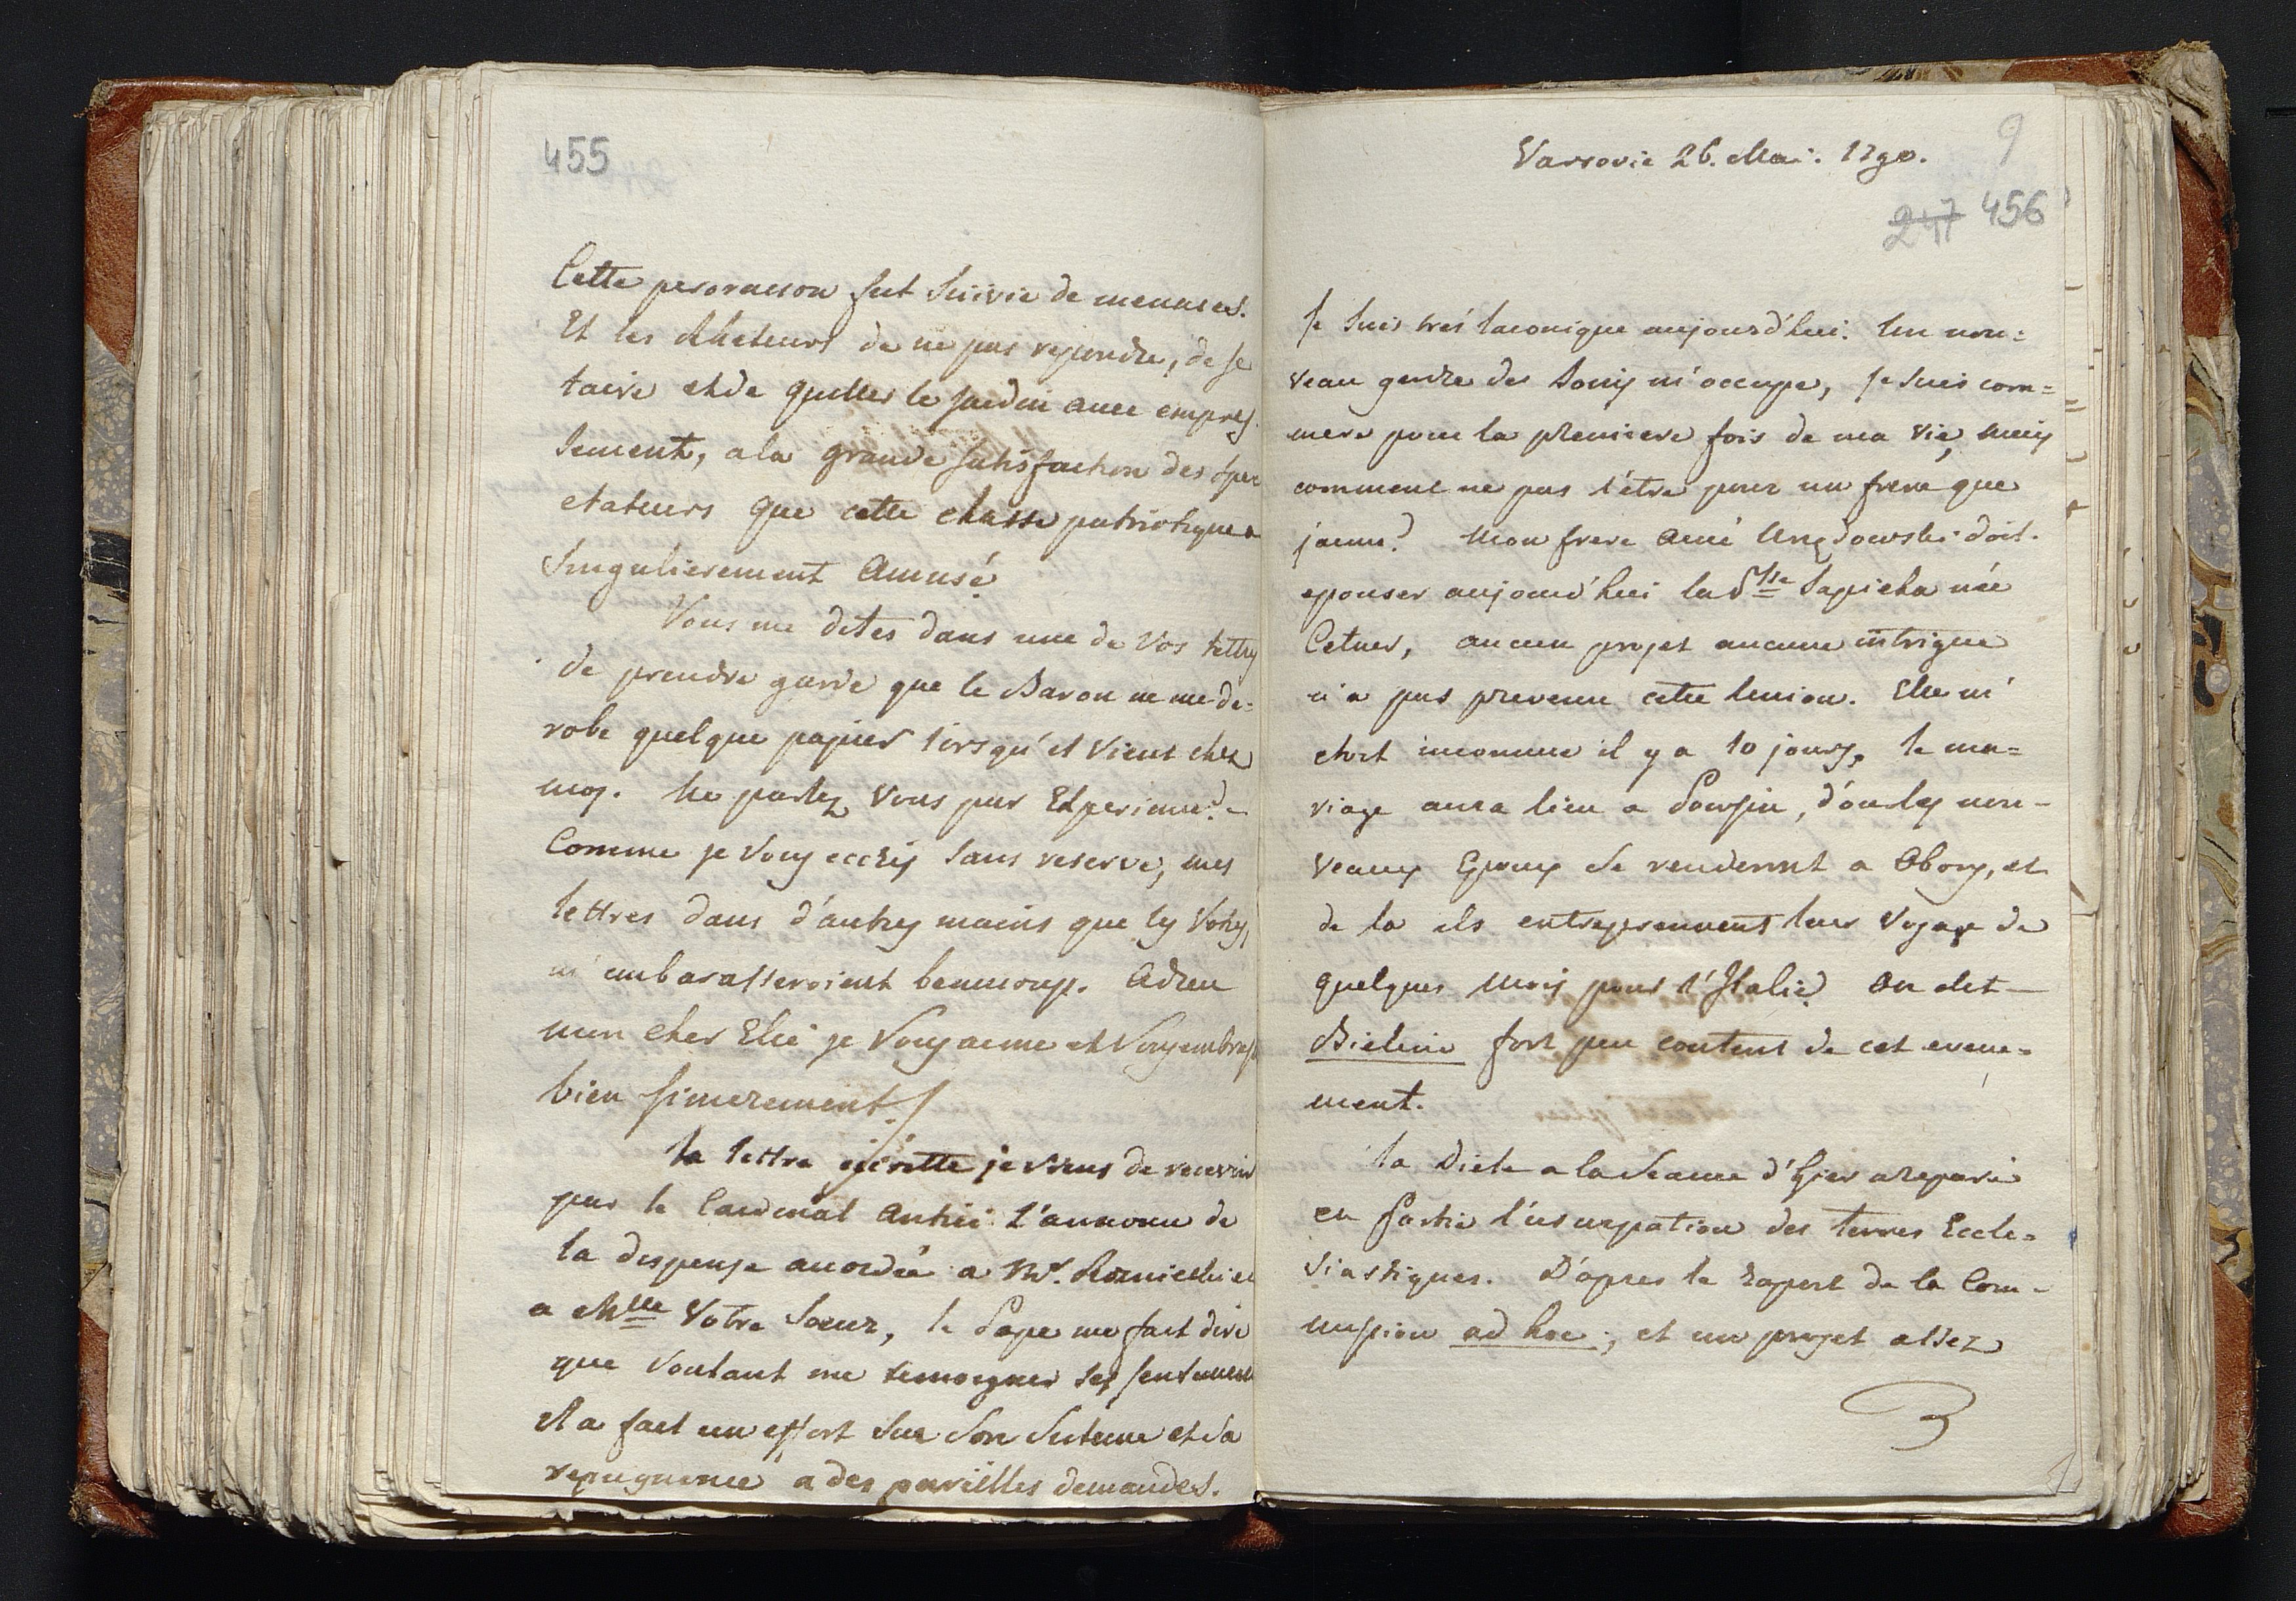 455
Cette peroraison fut Suivie de menaces.
Et les Rheteurs de ne pas repondre, de se
taire et de quitter le Jardin avec empres-
sement, a la grande satisfaction des spec
ctateurs que cette chasse patriotique a
Singulierement Amusé.
Vous me dites dans une de Vos lettres
de prendre garde que le Baron ne me de=
robe quelque papier lorsqu'il vient chez
moy. Me parlez Vous par Experience?
Comme je Vous ecris sans reserve, mes
lettres dans d'autres mains que les Votres,
m'embarasseroient beaucoup. Adieu
mon cher Elie je Vous aime et Vous embrasse
bien sincerement.
La lettre ecritte je viens de recevoir
par le Cardinal Antici l'annonce de
la dispense accordée a Mr. Rzniewski et
a Mlle Votre Soeur, le Pape me fait dire
que Voulant me temoigner ses sentimens
Il a fait un effort Sur Son Sisteme et Sa
repugnance a des pareilles demandes.
Varsovie 26. Mai. 1790.
9
247 456
Je Suis tres laconique aujourd'hui. Un nou=
veau genre des Soins m'occupe, Je Suis com=
mere pour la premiere fois de ma vie, mais
comment ne pas l'être pour un frere que
j'aime? Mon frere Ainé doit
epouser aujourd'hui la Psse Sapieha née
Cetner, aucun projet aucune intrigue
n'a pas prevenu cette Union. Elle m'
etoit inconnue il y a 10 jours, le ma=
riage aura lieu a Powsin, d'ou les nou-
veaux Epoux Se renderont a Obory, et
de la ils entreprennent leur Voyage de
quelques Mois pour l'Italie. On dit
Bielino fort peu content de cet evene=
ment.
La Diete a la Seance d'Hier a reparé
en Partie l'usurpation des terres Eccle=
siastiques. D'apres le raport de la Com-
mission ad hoc; et un projet assez